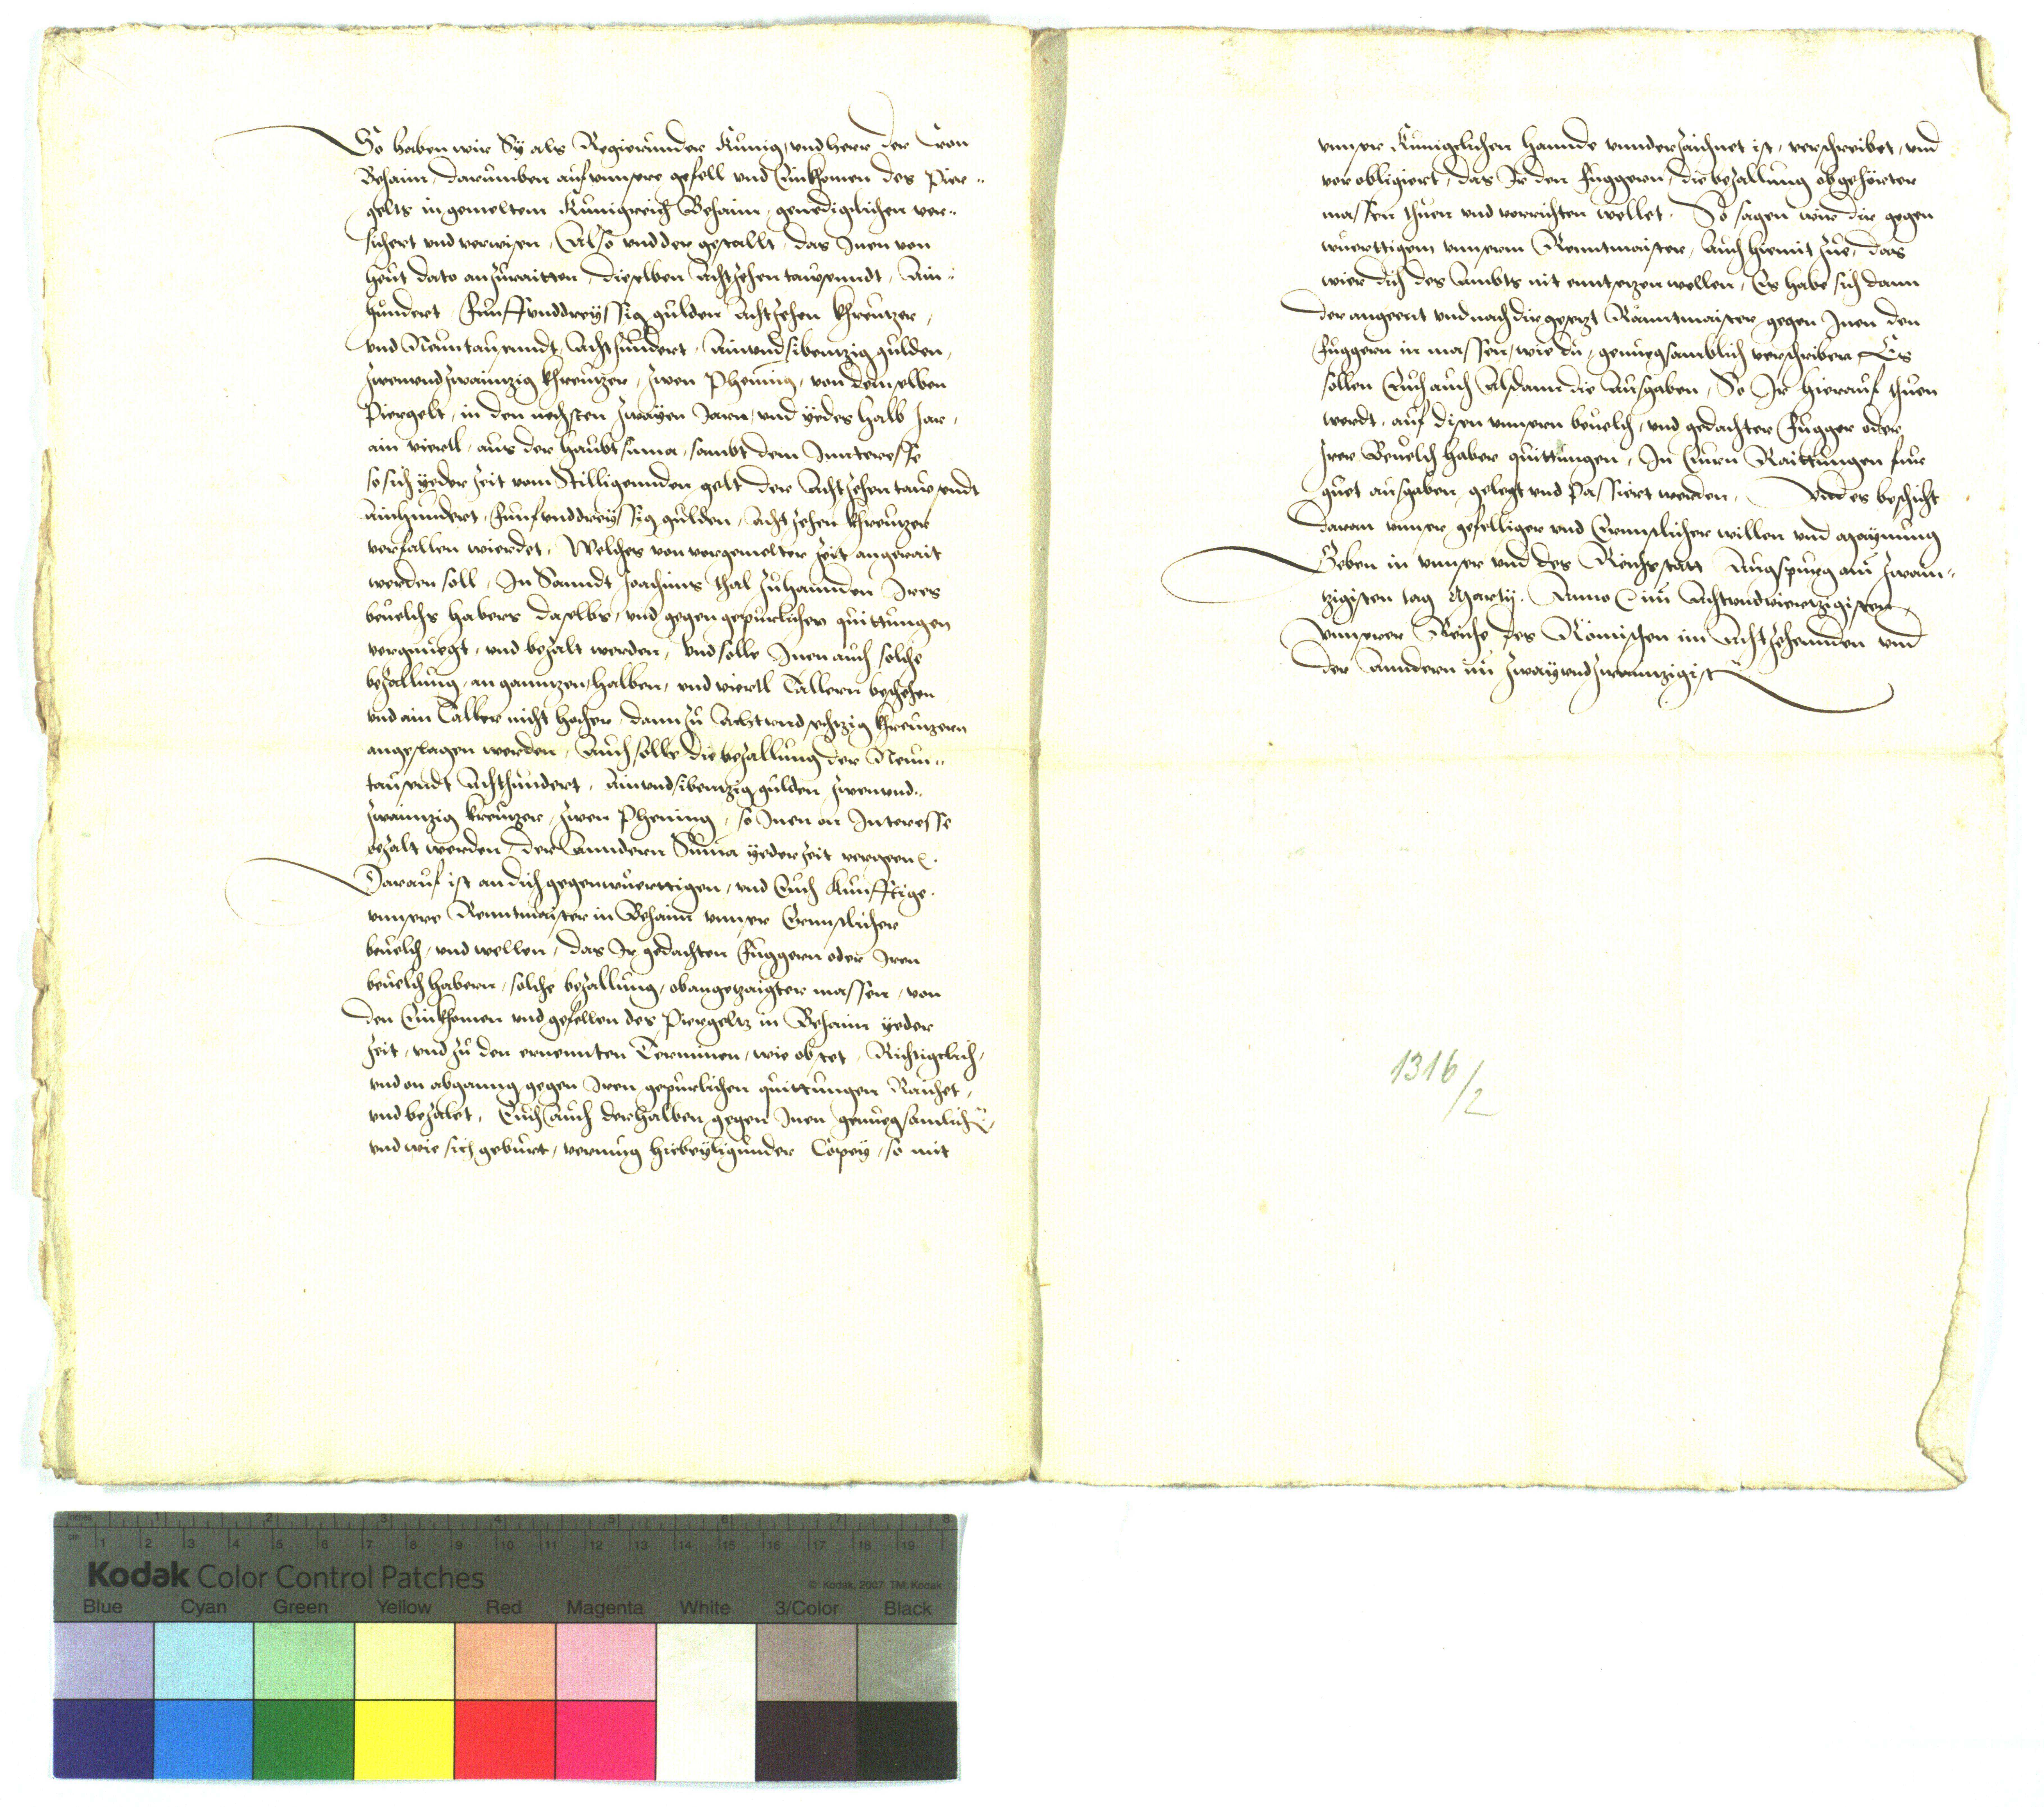 So haben wir Sy als Regierunder Kunig, vnd herr der Cron
Behaim, darumben auf vnnsere gefell vnd Einkhomen des Pier¬
gelts in gemeltem Kunigreich Behaim, genedigclichen ver¬
sichert vnd verwisen, Also vnd der gestallt, das Inen von
heut dato anzuraitten, dieselben Achtzehen tausenndt, Ain¬
hundert Funffvnddreyssig gulden Achtzehen khreutzer,
vnd Neuntausenndt, Achthundert, Ainundsibentzig gulden,
zwenvndzwaintzig khreutzer, zwen Phening, von demselben
Piergelt, in den nechsten zwayen Jarn, vnd yedes halb Jar,
ain viertl, aus der haubtsuma, sambt dem Innteresse
so sich yeder zeit vom Stilligennden gelt der Achtzehentausendt
Ainhundert, Funfvnddreyssig gulden, Achtzehen khreutzer
verfallen wierdet, Welches von vorgemelter zeit angerait
werden soll, In Sanndt Joachims thal zuhannden Ires
beuelchs habers daselbs, vnd gegen gepurlichen quittungen
vergnuegt, vnd bezalt werden, vnd solle Inen auch solche
bezallung, an ganntzen, halben, vnd viertl Tallern beschehen
vnd ain Taller nicht hocher, dann zu Achtvndsechtzig khreutzern
angeslagen werden, Auch solle die bezallung der Neun¬
tausendt Achthundert, Ainundsibentzig gulden zwenvnd¬
zwaintzig kreutzer, zwen Phening, so Inen on Interesse
bezalt werden, der Anndern Suma yederzeit vergeen.
Darauf ist an dich gegenwuerttigen, vnd Euch kunfftige
vnnsere Renntmaister in Behaim vnnser Ernnstlicher
beuelch, vnd wellen, das Ir gedachten Fuggern oder Iren
beuelchhabern, solche bezallung, obangetzaigter massen, von
den Einkhomen vnd gefellen des Piergeltz in Behaim yeder
zeit, vnd zu den ernennten Terminen, wie obstet, Richtigclich,
vnd on abganng gegen Iren gepurlichen quittungen Raichet,
vnd bezalet, Euch auch derhalben gegen Inen genuegsamlich
vnd wie sich geburt, vermug hiebeyligunder Copey, so mit
vnnser Kunigclichen hannde vnnderzaichnet ist, verschreibet, vnd
verobligiert, das Ir den Fuggern, die bezallung obgehörter
massen thuen vnd verrichten wellet. So sagen wir dir gegen
wuerttigem vnnserm Renntmaister, Auch hiemit zue, das
wier dich des Ambts nit enntsetzen wellen, Es habe sich dann
der angeent vnd nach dir gesetzt Ränntmaister, gegen Inen den
Fuggern in massen, wie du, genuegsamblich verschriben. Es
sollen Euch auch Alsdann die Ausgaben, So Ir hierauf thuen
werdt, auf disen vnnsern beuelch, vnd gedachter Fugger oder
Irer Beuelch haber quittungen, In Eurn Raittungen fuer
guet ausgaben, gelegt vnd Passiert werden. Vnd es beschicht
daran vnnser gefelliger vnd Ernnstlicher willen vnd maynung
Geben in vnnser vnd des Reichsstatt Augspurg am zwain¬
tzigisten tag Marty. Anno Etc im Achtundviertzigisten,
Vnnserer Reiche des Römischen im Achtzehennden vnd
der Anndern im zwayvndzwaintzigist
1316/2
inches 1 2 3 4 5 6 7 8
cm 1 2 3 4 5 6 7 8 9 10 11 12 13 14 15 16 17 18 19
Kodak Color Control Patches
© Kodak, 2007 TM: Kodak
Blue Cyan Green Yellow Red Magenta White 3/Color Black